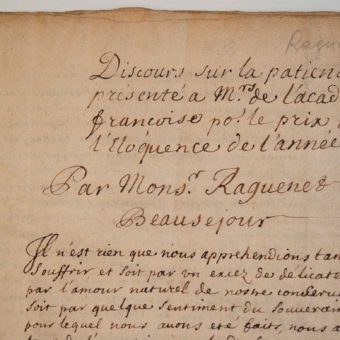 Ragu
Discours sur la patien
présenté a M.rs de l'acad
francoise po.r le prix
l'Eloquence de l'année
Par Mons.r Raguenet
Beausejour
Il n'est rien que nous apprehendions tan
souffrir et soit par vn excez de delicate
par l'amour naturel de nostre conserva
soit par quelque sentiment du souverain
pour lequel nous avons eté faits, nous a